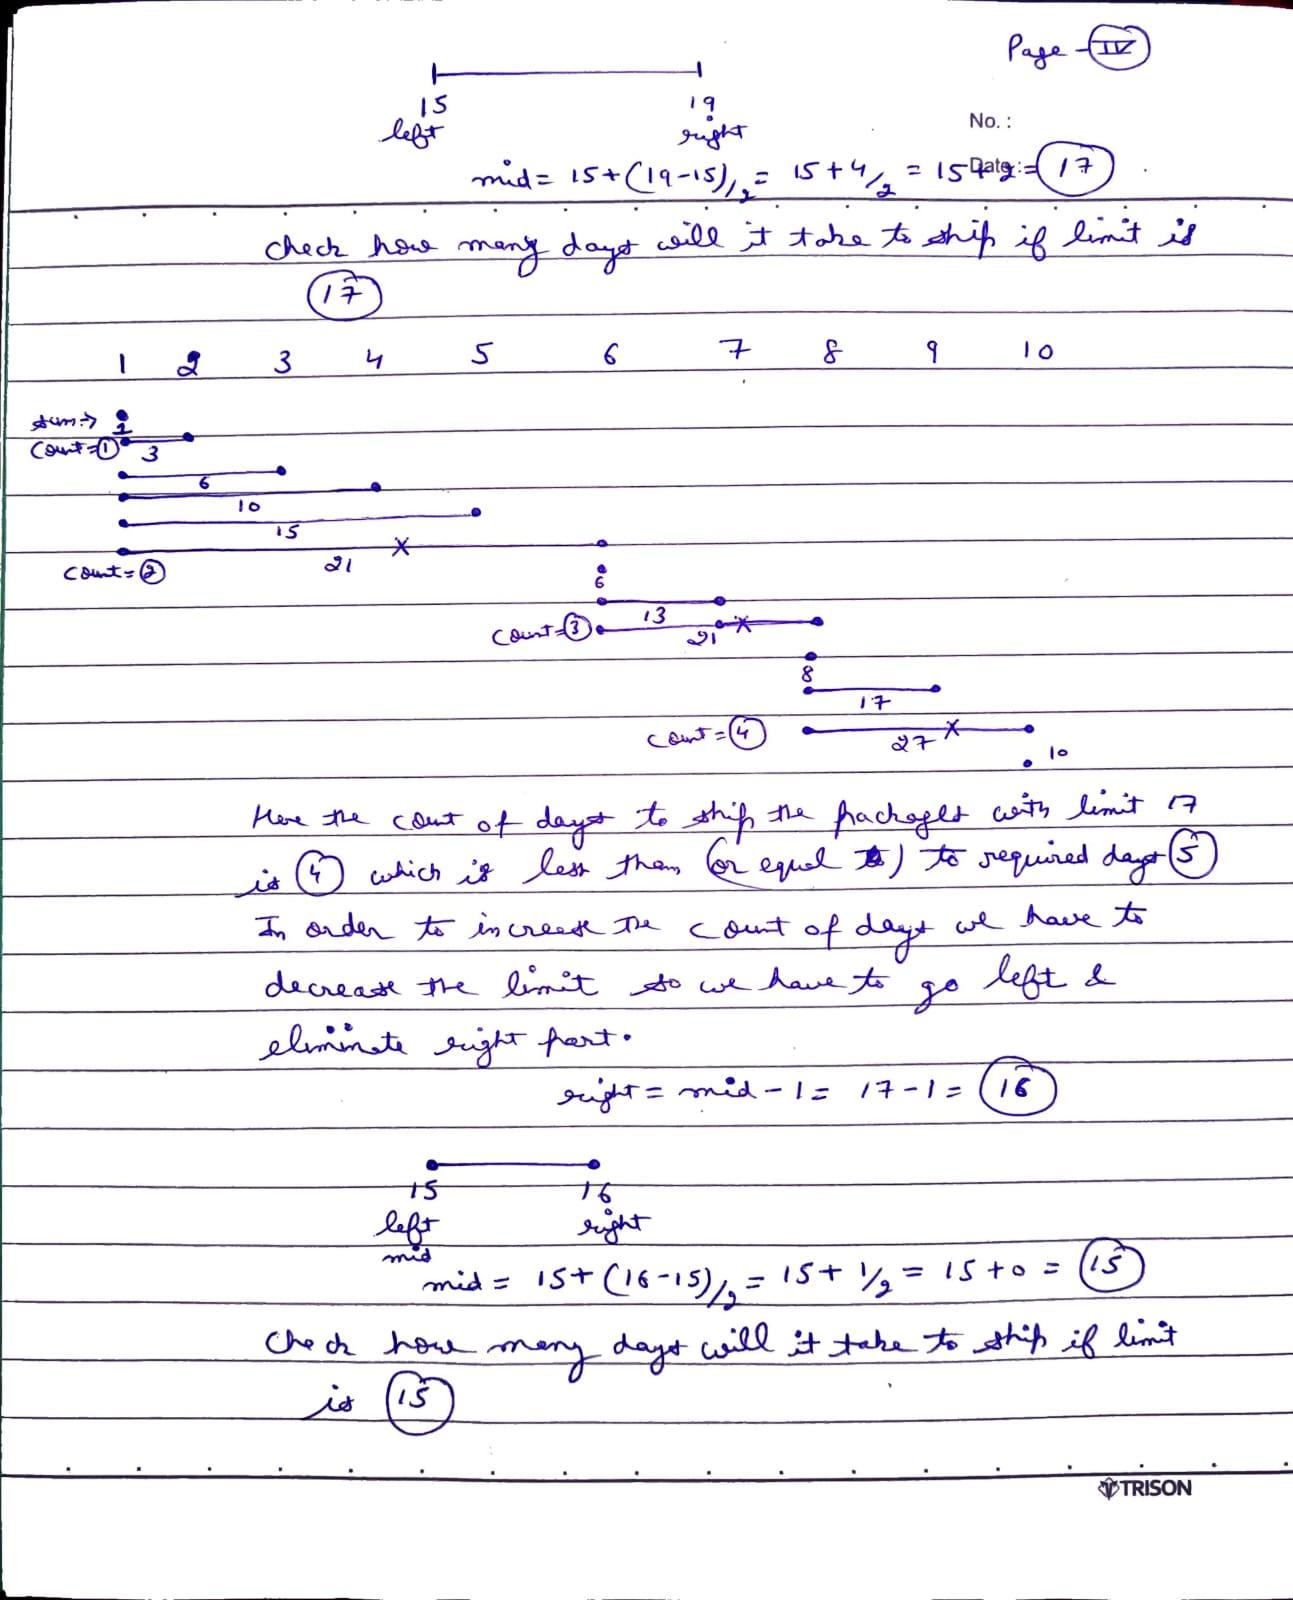 Page - IV
15 19
left right
No. :
Date :
mid = 15+(19-15)/2 = 15+4/2 = 15+2 = 17
check how many days will it take to ship if limit is
17
1 2 3 4 5 6 7 8 9 10
sum→ 1
Count=1 3
6
10
15
21
Count=2
6
13
Count=3 21
8
17
Count=4 27
10
Here the count of days to ship the packages with limit 17
is 4 which is less than (or equal to) to required days 5
In order to increase the count of days we have to
decrease the limit so we have to go left &
eliminate right part.
right = mid - 1 = 17-1 = 16
15 16
left right
mid
mid = 15+(16-15)/2 = 15+1/2 = 15+0 = 15
Check how many days will it take to ship if limit
is 15
TRISON